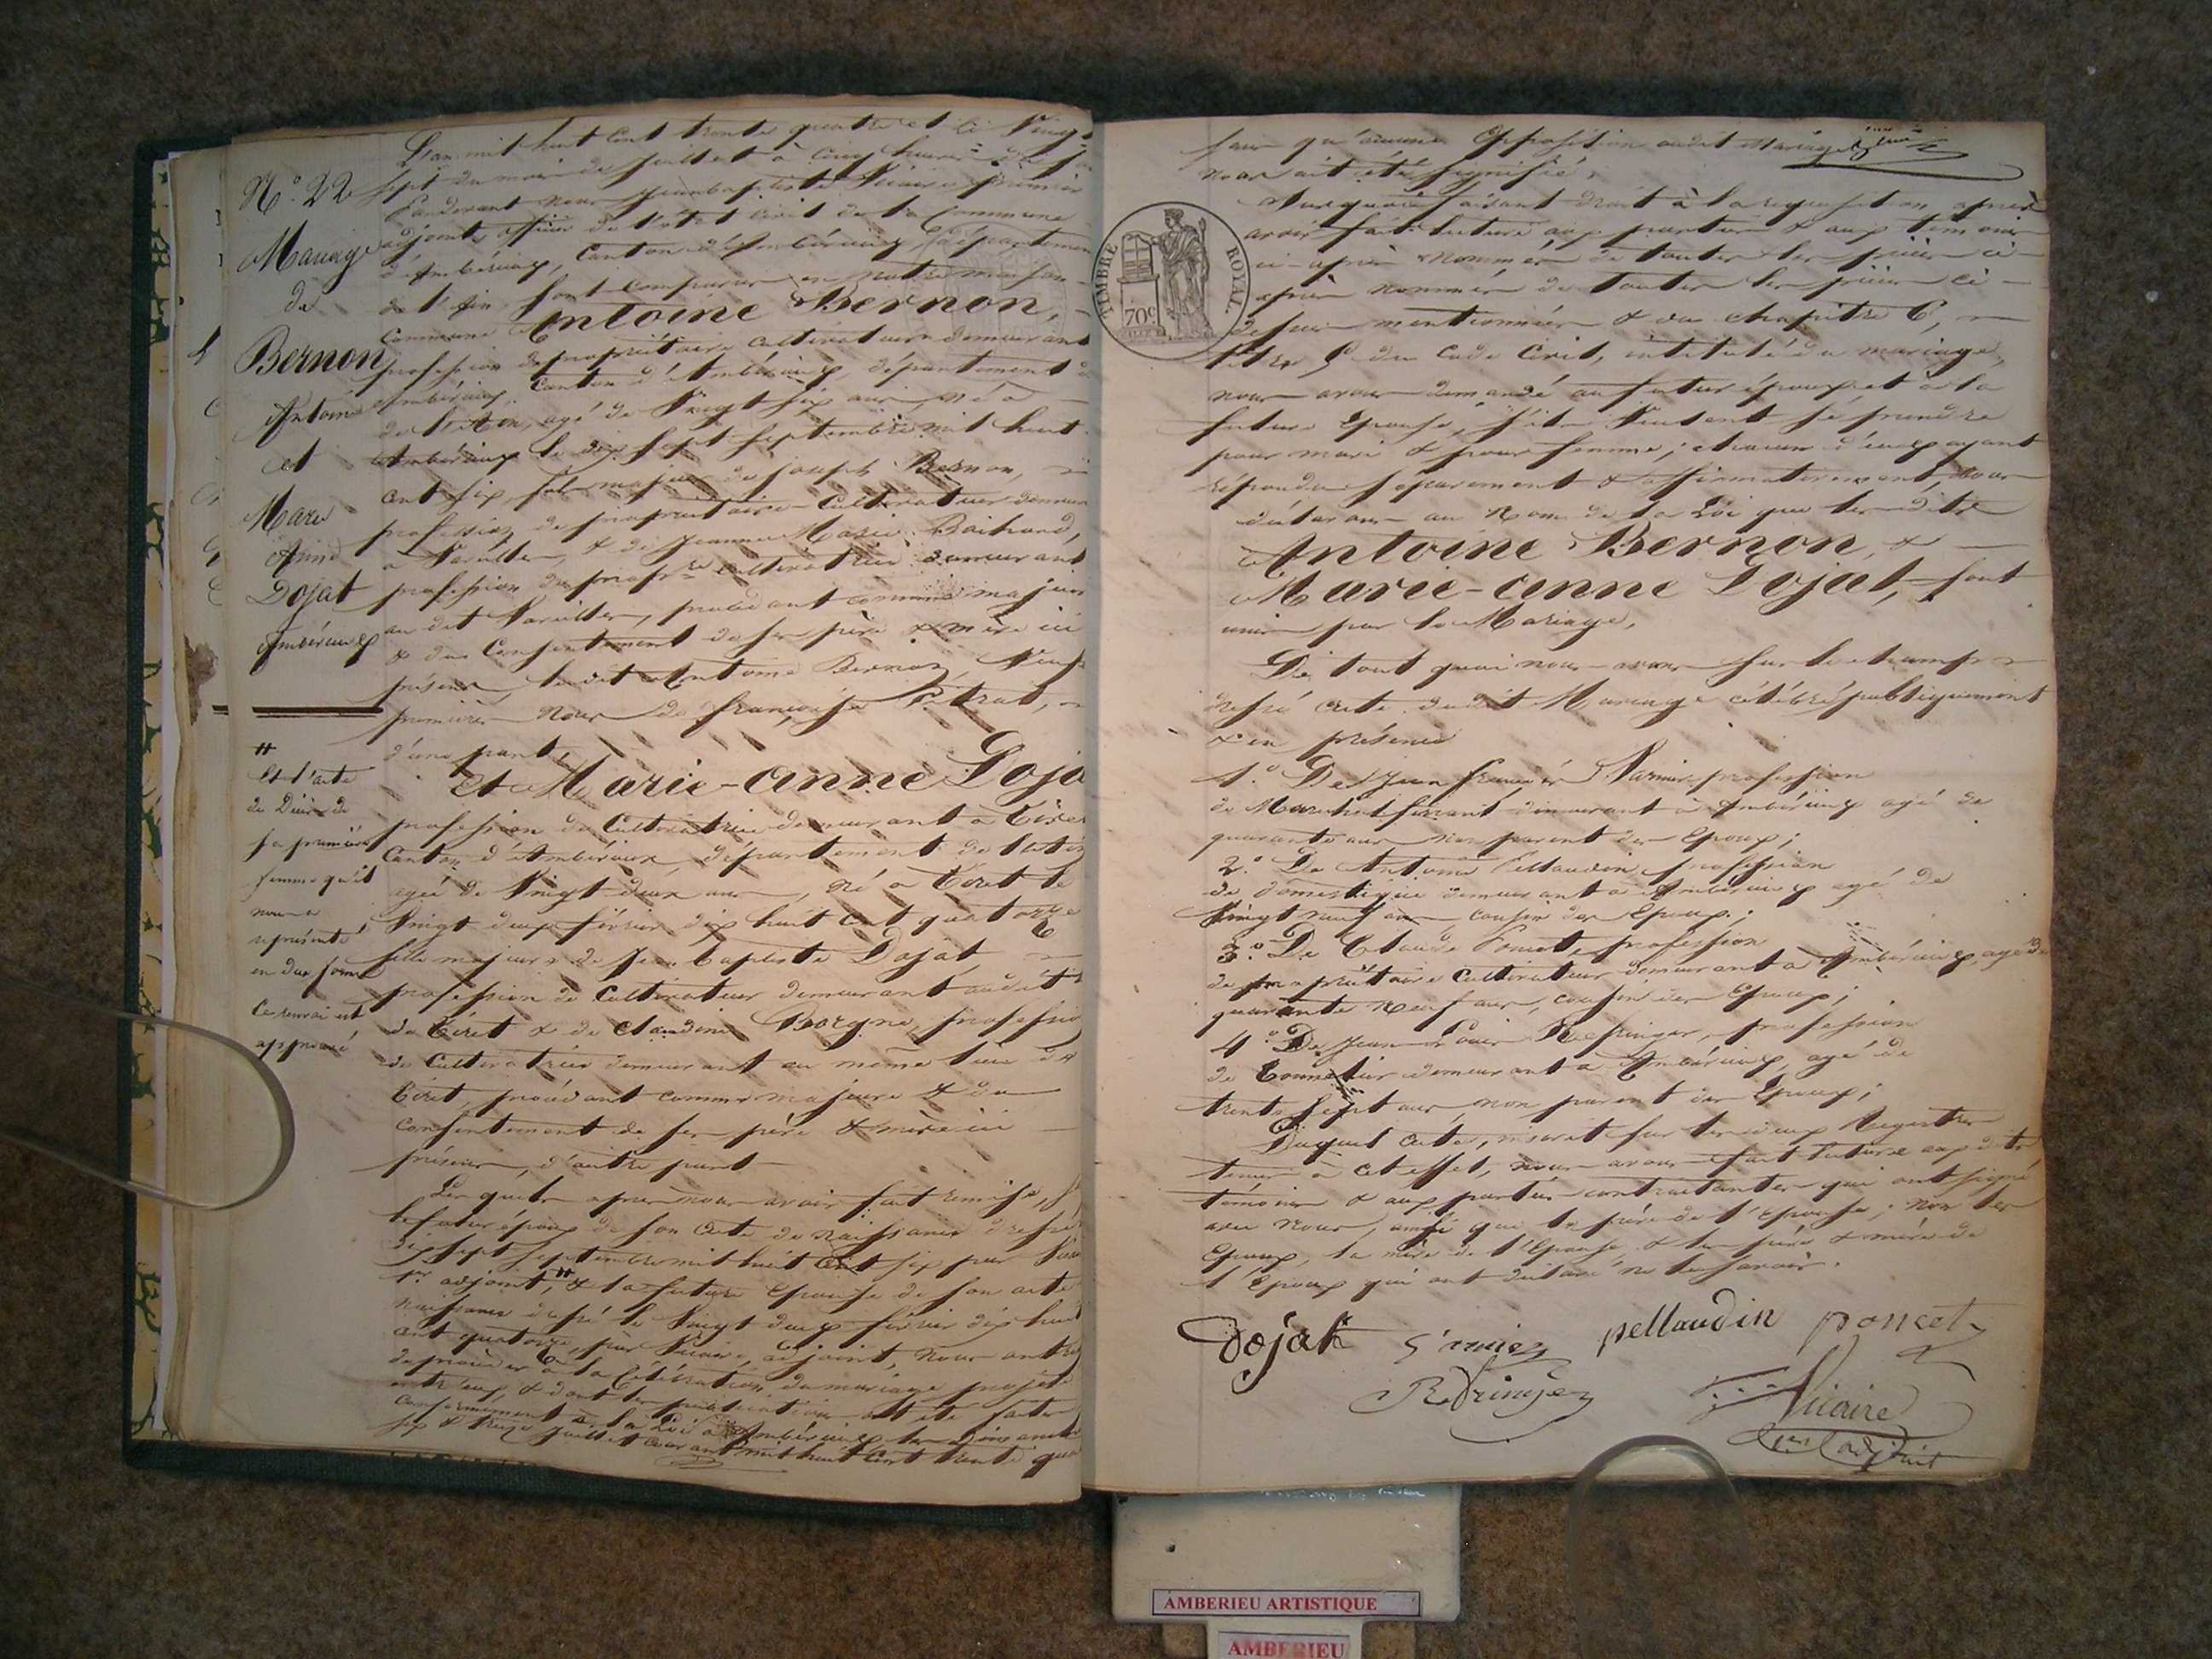 N.º 22
Mariage
de
Bernon
Antoine
et
Marie
Anne
Dojat
Ambérieux
#
Et l'acte
de Décès de
sa première
femme qu'il
nous a
représenté
en due forme
Ce renvoi est
approuvé
L'an mil huit cent trente quatre et le Vingt
sept du mois de Juillet à cinq heures
Pardevant nous Jeanbaptiste Vicaire premier
adjoint, officier de l'état civil de la Commune
d'Ambérieux, Canton d'Ambérieux, Département
de l'Ain, sont comparus en notre maison
Commune Antoine Bernon,
profession de propriétaire cultivateur demeurant
Ambérieux, Canton d'Ambérieux, département
de l'Ain, agé de Vingt sept ans, né à
Ambérieux le dix sept septembre mil huit
cent six, fils majeur de joseph Bernon,
profession de propriétaire-Cultivateur
à Vareilles, & de Jeanne Marie
profession de propre cultivatrice demeurant
au dit Vareilles, procédant comme majeur
& du Consentement de ses père & mère ici
présens, le dit Antoine Bernon Veuf
premières Noces de françoise
d'une part,
et Marie-anne Doja
profession de Cultivatrice demeurant à Tiret
Canton d'Ambérieux, département de l'ain
agée de Vingt deux ans, né à Tiret le
Vingt deux février dix huit cent quatorze
fille majeure de Jean baptiste Dojat,
profession de Cultivateur demeurant audit
de Tiret & de Claudine Borgne, professio
de Cultivatrice demeurant au même lieu de
Tiret, procédant comme majeure & du
Consentement de ses père & mère ici
présens, d'autre part
Lesquels après nous avoir fait remise,
le futur époux de son acte de naissance dressé
dix sept septembre mil huit cent six par
1er adjoint, # & la future Epouse de son acte
naissance dressé le Vingt deux février dix huit
cent quatorze, par Vicaire, adjoint, Nous ont
de procéder à la Célébration du mariage projeté
entr'eux & dont les publications ont été faites
conformément à la Loi à Ambérieux les Dimanches
six & treize Juillet courant mil huit cent trente qua
sans qu'aucune Opposition audit Mariage
nous ait été signifiée,
Auxquels faisant droit à la requisition après
avoir fait lecture aux parties & aux témoins
ci-après Nommés de toutes les pièces ci-
après nommés de toutes les pièces ci-
dessus mentionnées & du chapitre 6,
titre 5 du Code Civil, intitulé du mariage,
nous avons demandé au futur époux et à la
future Epouse, s'ils Veulent se prendre
pour mari & pour femme; chacun d'eux ayant
répondu separement & affirmativement, Nous
déclarons au Nom de la Loi que les dits
Antoine Bernon, &
Marie-anne Dojat, sont
unis par le Mariage,
De tout quoi nous avons sur le champ
dressé acte dudit Mariage célébré publiquement
& en présence
1.º De Jean françois profession
de Marechal ferrant demeurant à Ambérieux agé de
quarante ans non parent des Epoux;
2.º De Antoine Pellaudin, profession
de domestique demeurant à Ambérieux agé de
Vingt neuf ans cousin des Epoux;
3.º De Claude Poncet, profession
de propriétaire Cultivateur demeurant à Ambérieux, agé de
quarante Neuf ans, cousin des Epoux;
4.º De Jean Louis profession
de Tonnelier demeurant à Ambérieux, agé de
trente sept ans, non parent des Epoux;
Duquel acte, inscrit sur les deux Registres
tenus à cet effet, nous avons fait lecture aux dits
témoins & aux parties contractantes qui ont signé
avec Nous, ainsi que le père de l'épouse; Non les
Epoux, la mère de l'Epouse & les père & mère de
l'Epoux qui ont déclaré ne le savoir.
Dojat pellaudin poncet
Vicaire
1er adjoint
TIMBRE ROYAL.
70c
AMBERIEU ARTISTIQUE
AMBERIEU